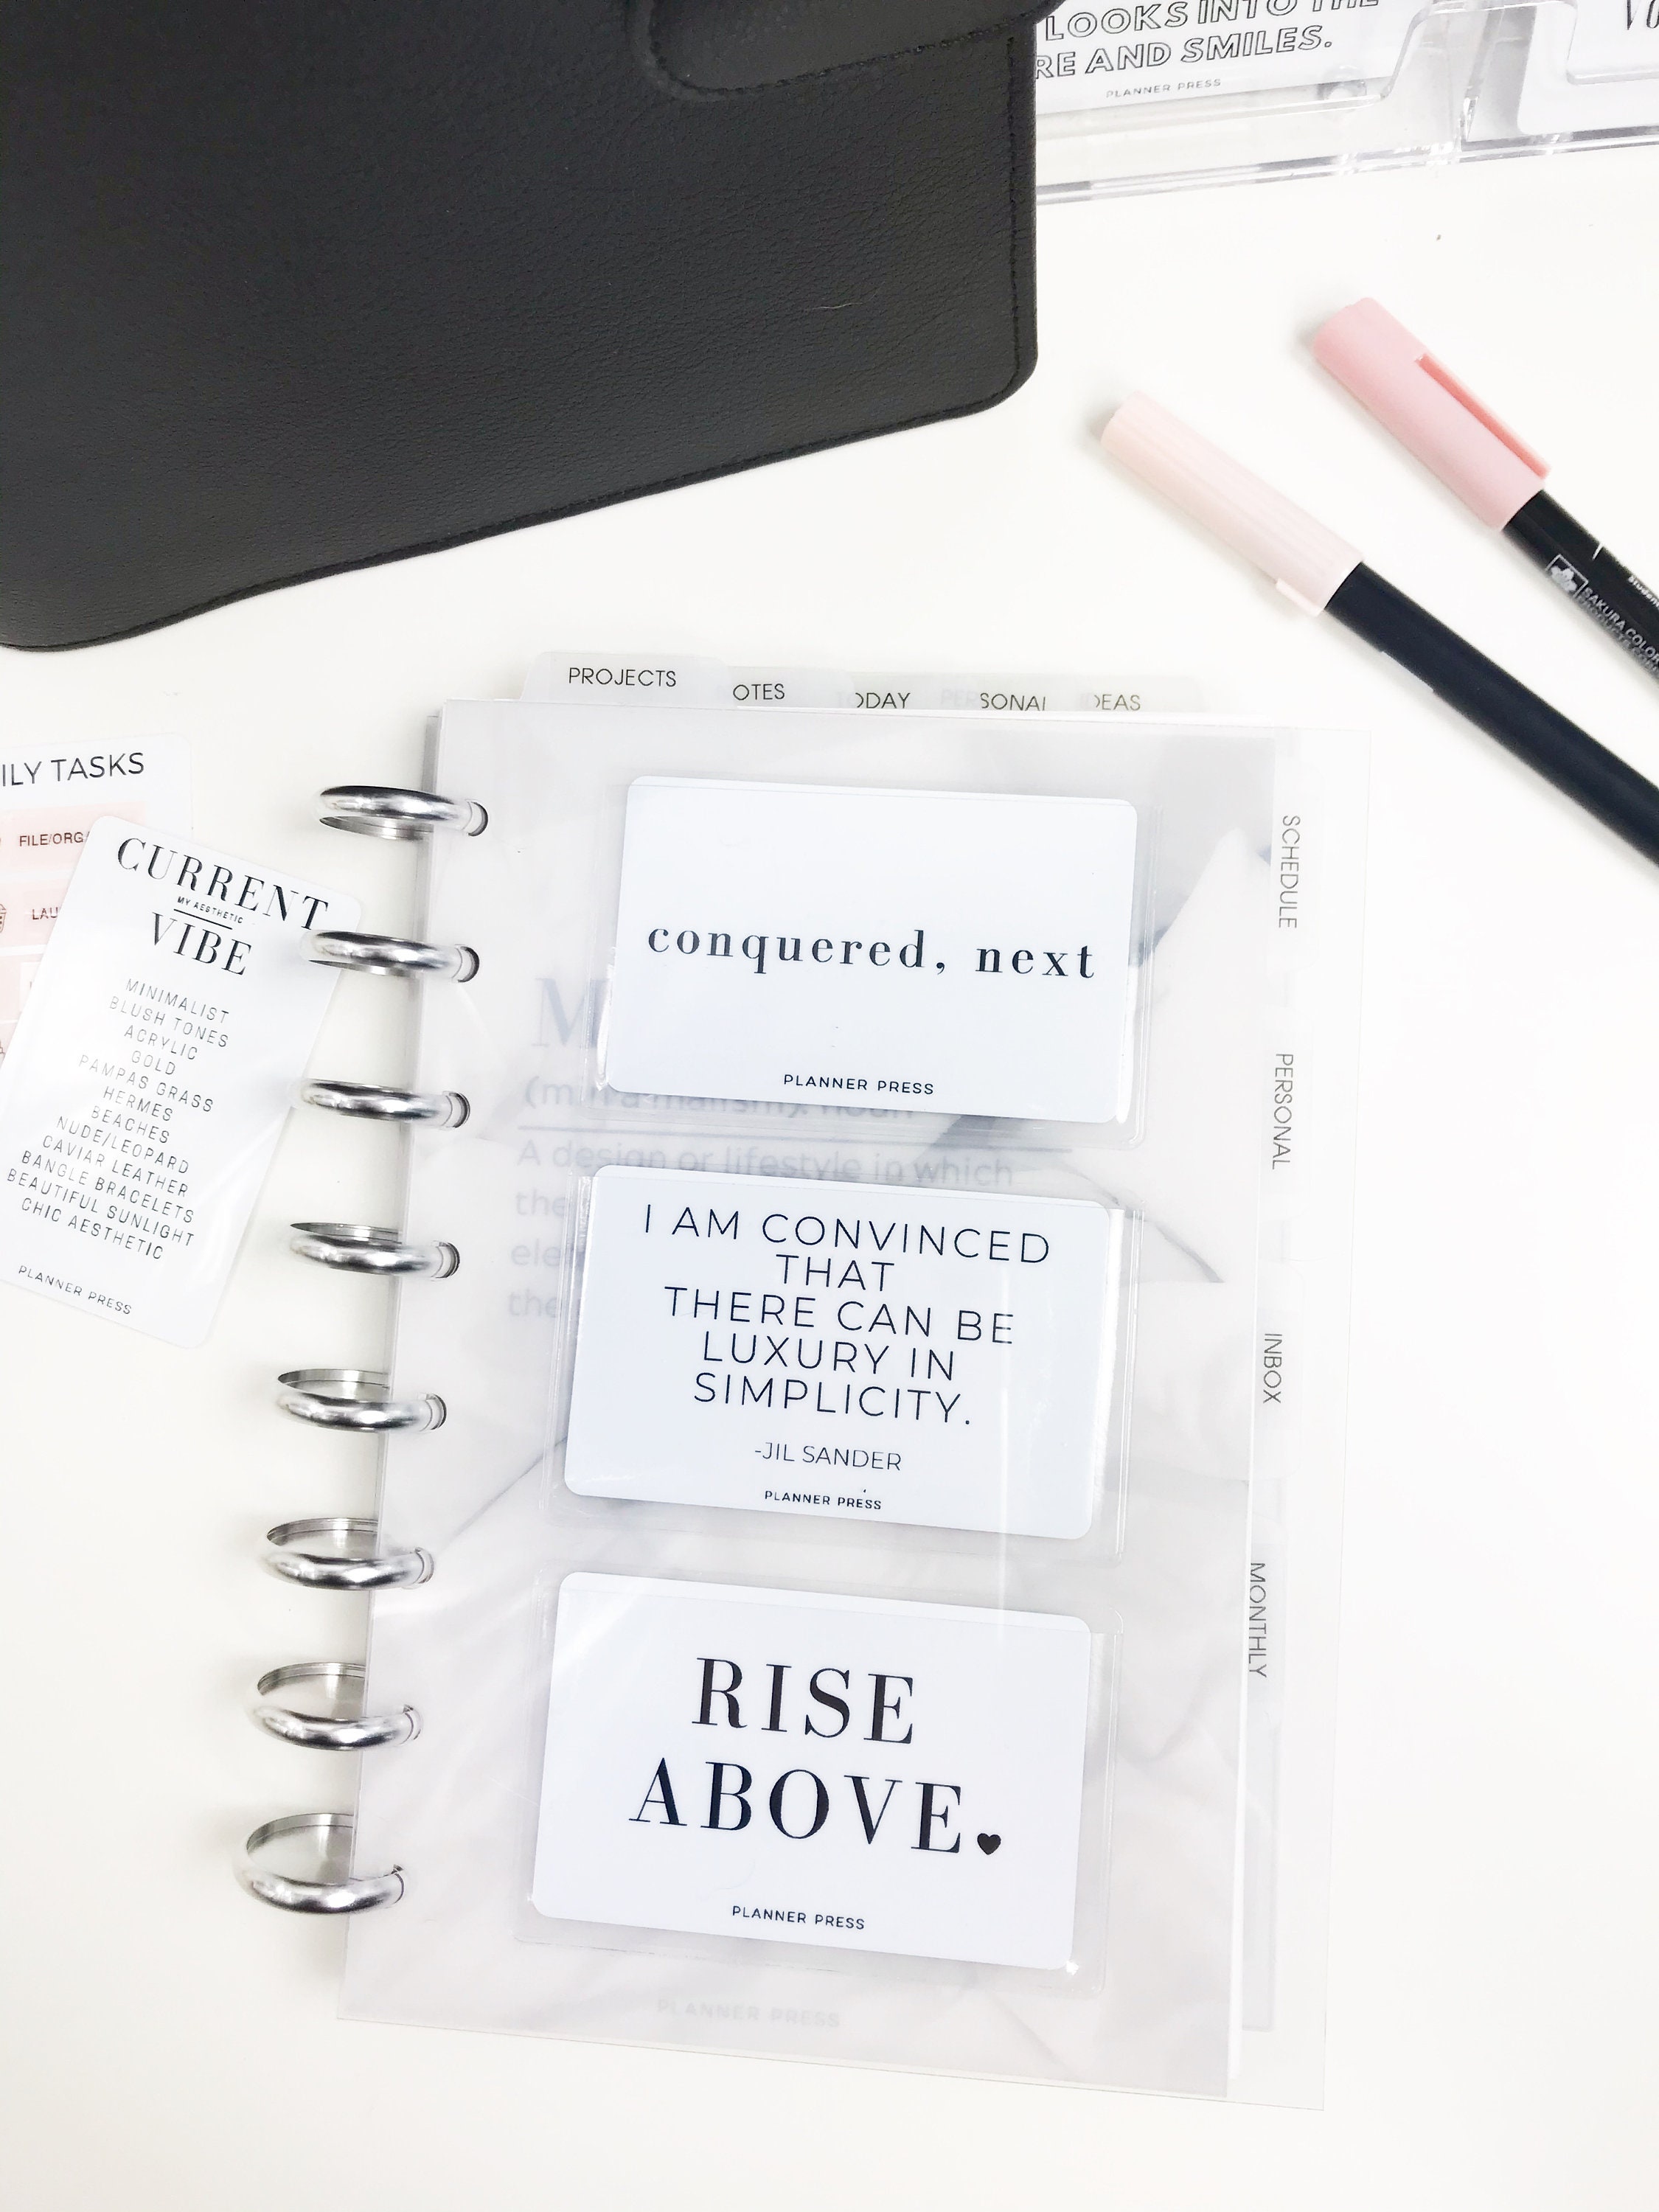 LOOKS INTO THE
RE AND SMILES.
PLANNER PRESS
SAKURA COLOR
PROJECTS
OTES
ODAY
SONAL
DEAS
SCHEDULE
PERSONAL
INBOX
MONTHLY
ILY TASKS
FILE/ORG
LAU
CURRENT
MY AESTHETIC
VIBE
MINIMALIST
BLUSH TONES
ACRYLIC
GOLD
PAMPAS GRASS
HERMES
BEACHES
NUDE/LEOPARD
CAVIAR LEATHER
BANGLE BRACELETS
BEAUTIFUL SUNLIGHT
CHIC AESTHETIC
PLANNER PRESS
conquered, next
PLANNER PRESS
M
noun
A design or lifestyle in which
the
ele
the
I AM CONVINCED
THAT
THERE CAN BE
LUXURY IN
SIMPLICITY.
-JIL SANDER
PLANNER PRESS
RISE
ABOVE.
PLANNER PRESS
PLANNER PRESS